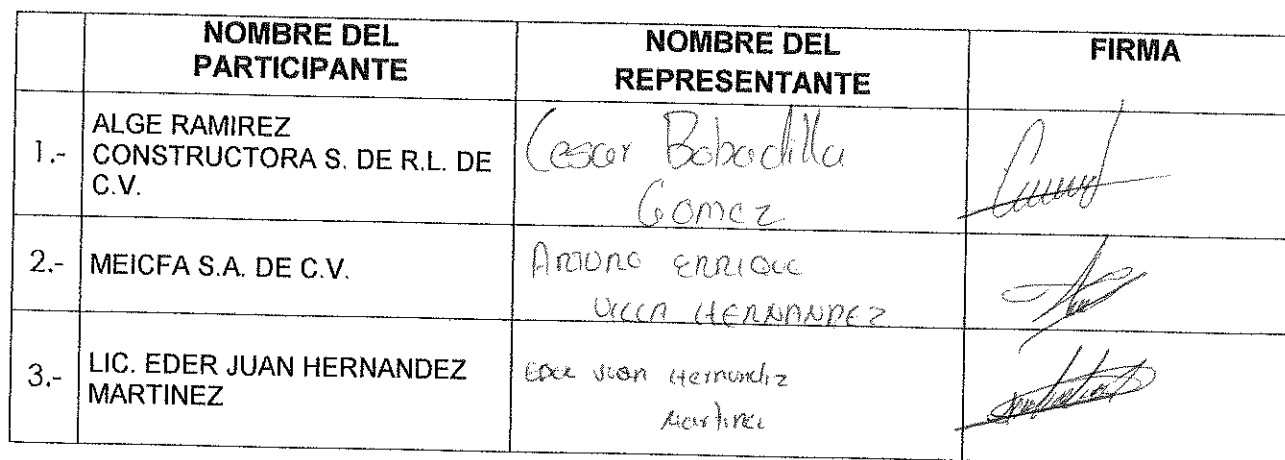 NOMBRE DEL
PARTICIPANTE
NOMBRE DEL
REPRESENTANTE
FIRMA
1.-
ALGE RAMIREZ
CONSTRUCTORA S. DE R.L. DE
C.V.
Cesar Bobadilla
Gomez
2.-
MEICFA S.A. DE C.V.
ARTURO ENRIQUE
VILLA HERNANDEZ
3.-
LIC. EDER JUAN HERNANDEZ
MARTINEZ
Eder Juan Hernandez
Martinez